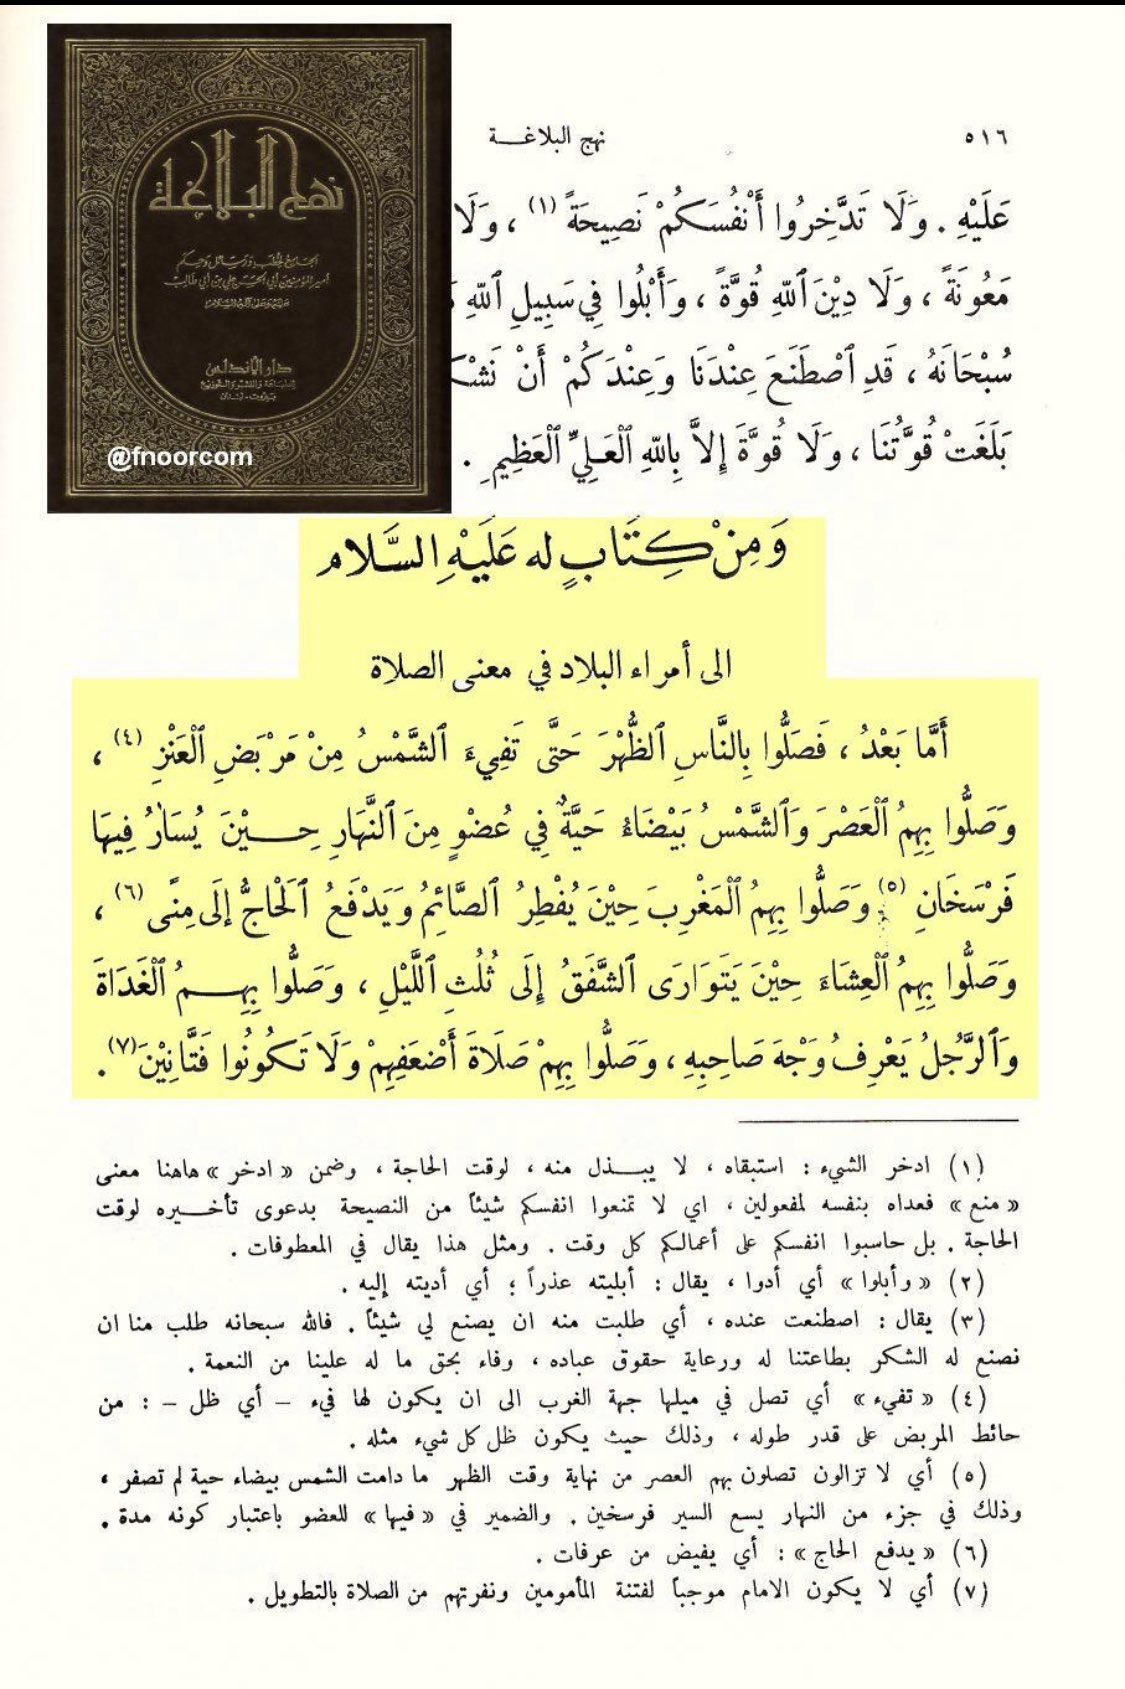 نهج البلاغة
الجامع لخطب ورسائل وحكم
أمير المؤمنين أبي الحسن علي بن أبي طالب
دار الأندلس
للطباعة والنشر والتوزيع
بيروت - لبنان
@fnoorcom
٥١٦
نهج البلاغــة
عَلَيْهِ . وَلَا تَدَّخِرُوا أَنْفُسَكُمْ نَصِيحَةً (١) ، وَلَا
مَعُونَةً ، وَلَا دِيْنَ ٱللهِ قُوَّةً ، وَأَبْلُوا فِي سَبِيلِ ٱللهِ
سُبْحَانَهُ ، قَدِ ٱصْطَنَعَ عِنْدَنَا وَعِنْدَكُمْ أَنْ
بَلَغَتْ قُوَّتُنَا ، وَلَا قُوَّةَ إِلاَّ بِاللهِ ٱلْعَلِيِّ ٱلْعَظِيمِ .
وَمِنْ كِتَابٍ له عَلَيْهِ السَّلام
الى أمراء البلاد في معنى الصلاة
أَمَّا بَعْدُ ، فَصَلُّوا بِالنَّاسِ ٱلظُّهْرَ حَتَّى تَفِيءَ ٱلشَّمْسُ مِنْ مَرْبَضِ ٱلْعَنْزِ (٤) ،
وَصَلُّوا بِهِمُ ٱلْعَصْرَ وَٱلشَّمْسُ بَيْضَاءُ حَيَّةٌ فِي عُضْوٍ مِنَ ٱلنَّهَارِ حِـــيْنَ يُسَارُ فِيهَا
فَرْسَخَانِ (٥) . وَصَلُّوا بِهِمُ ٱلْمَغْرِبَ حِيْنَ يُفْطِرُ ٱلصَّائِمُ وَيَدْفَعُ ٱلْحَاجُّ إِلَى مِنًى (٦) ،
وَصَلُّوا بِهِمُ ٱلْعِشَاءَ حِيْنَ يَتَوَارَى ٱلشَّفَقُ إِلَى ثُلُثِ ٱللَّيْلِ ، وَصَلُّوا بِهِــــمُ ٱلْغَدَاةَ
وَٱلرَّجُلُ يَعْرِفُ وَجْهَ صَاحِبِهِ ، وَصَلُّوا بِهِمْ صَلَاةَ أَضْعَفِهِمْ وَلَا تَكُونُوا فَتَّانِيْنَ (٧) .
(١) ادخر الشيء : استبقاه ، لا يبــــذل منه ، لوقت الحاجة ، وضمن « ادخر » هاهنا معنى
« منع » فعداه بنفسه لمفعولين ، اي لا تمنعوا انفسكم شيئاً من النصيحة بدعوى تأخــــيره لوقت
الحاجة . بل حاسبوا انفسكم على أعمالكم كل وقت . ومثل هذا يقال في المعطوفات .
(٢) « وأبلوا » أي أدوا ، يقال : أبليته عذراً ؛ أي أديته إليه .
(٣) يقال : اصطنعت عنده ، أي طلبت منه ان يصنع لي شيئاً . فالله سبحانه طلب منا ان
نصنع له الشكر بطاعتنا له ورعاية حقوق عباده ، وفاء بحق ما له علينا من النعمة .
(٤) « تفيء » أي تصل في ميلها جهة الغرب الى ان يكون لها فيء – أي ظل – : من
حائط المربض على قدر طوله ، وذلك حيث يكون ظل كل شيء مثله .
(٥) أي لا تزالون تصلون بهم العصر من نهاية وقت الظهر ما دامت الشمس بيضاء حية لم تصفر ،
وذلك في جزء من النهار يسع السير فرسخين . والضمير في « فيها » للعضو باعتبار كونه مدة .
(٦) « يدفع الحاج » : أي يفيض من عرفات .
(٧) أي لا يكون الامام موجباً لفتنة المأمومين ونفرتهم من الصلاة بالتطويل .